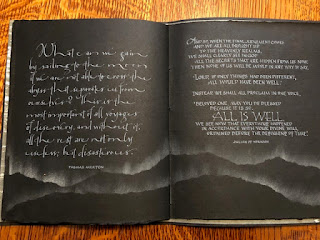 What can we gain
by sailing to the moon
if we are not able to cross the
abyss that separates us from
ourselves? This is the
most important of all voyages
of discovery, and without it,
all the rest are not only
useless, but disastrous.
THOMAS MERTON
AND SO, WHEN THE FINAL JUDGEMENT COMES
AND WE ARE ALL BROUGHT UP
TO THE HEAVENLY REALMS,
WE SHALL CLEARLY SEE IN GOD
ALL THE SECRETS THAT ARE HIDDEN FROM US NOW.
THEN NONE OF US WILL BE MOVED IN ANY WAY TO SAY,
"LORD, IF ONLY THINGS HAD BEEN DIFFERENT,
ALL WOULD HAVE BEEN WELL."
INSTEAD, WE SHALL ALL PROCLAIM IN ONE VOICE,
"BELOVED ONE, MAY YOU BE BLESSED
BECAUSE IT IS SO:
ALL IS WELL.
WE SEE NOW THAT EVERYTHING HAPPENED
IN ACCORDANCE WITH YOUR DIVINE WILL,
ORDAINED BEFORE THE BEGINNING OF TIME."
JULIAN OF NORWICH